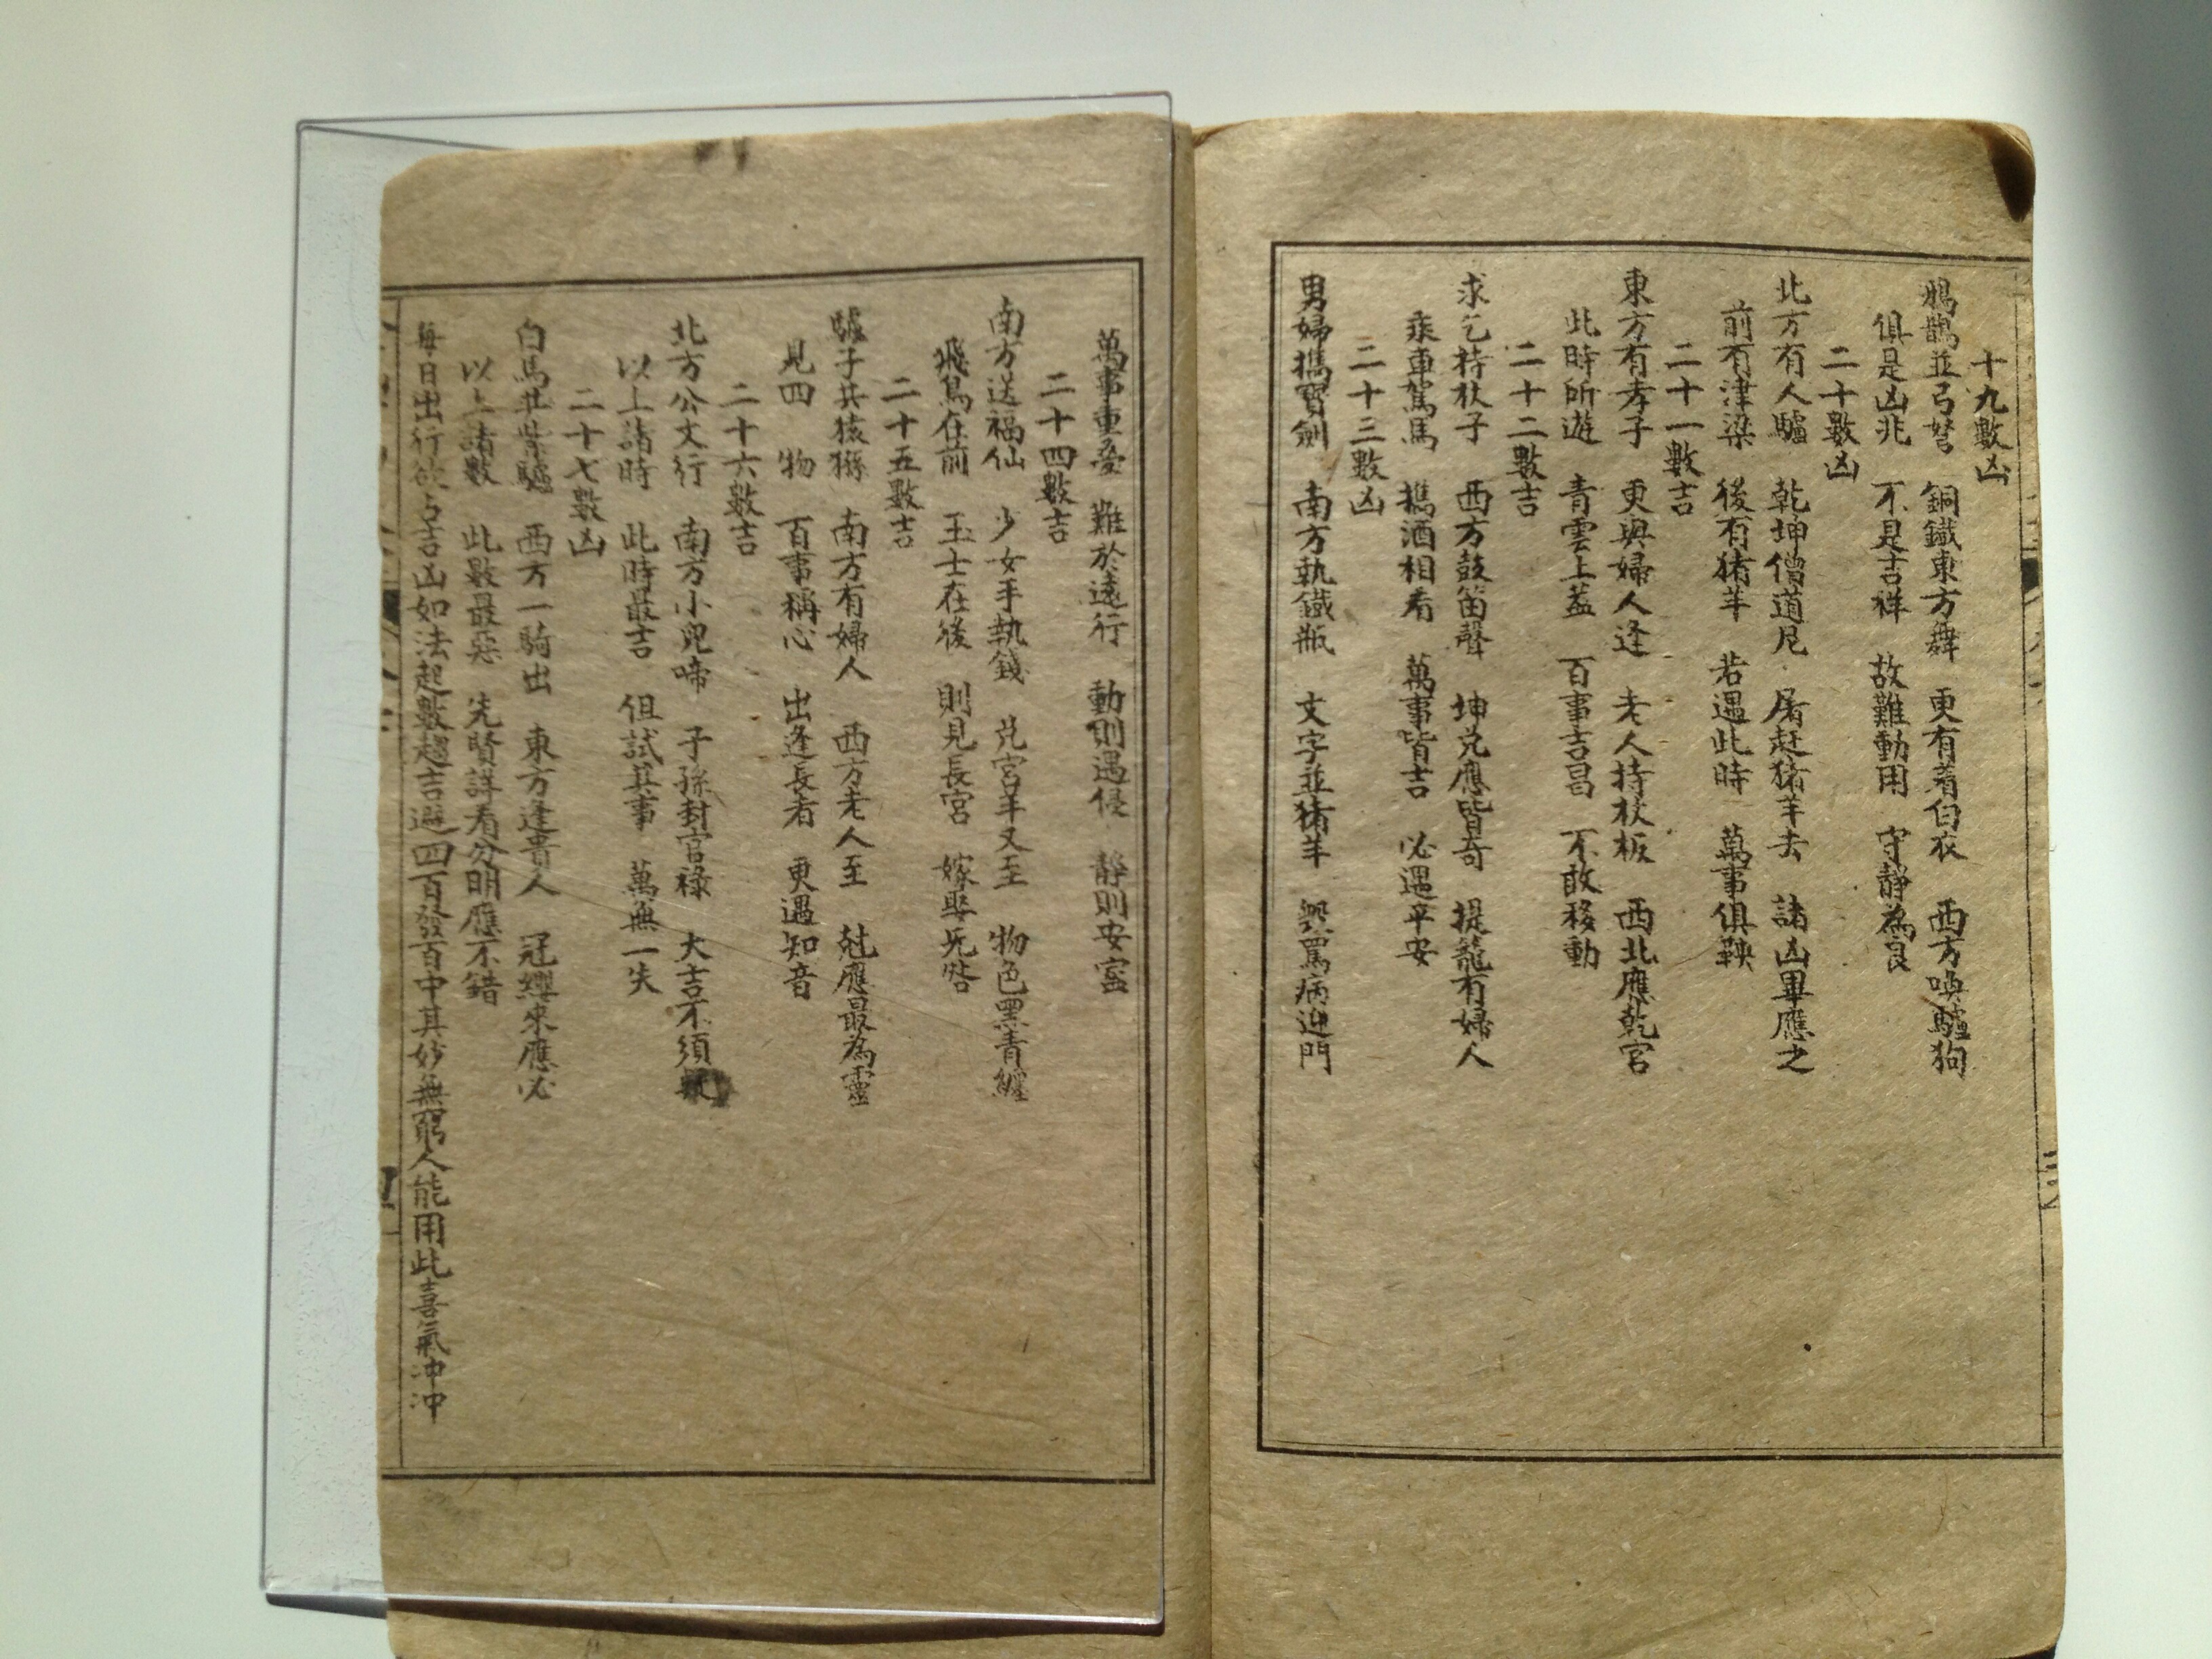 十九數凶
鴉鵲並弓弩　銅鐵東方舞　更有着白衣　西方喚驢狗
俱是凶兆　不是吉祥　故難動用　守靜為良
二十數凶
北方有人驢　乾坤僧道尼　屠赶猪羊去　諸凶畢應之
前有津梁　後有猪羊　若遇此時　萬事俱鞅
二十一數吉
東方有孝子　更與婦人逢　老人持杖板　西北應乾宮
此時所遊　青雲上盖　百事吉昌　不敢移動
二十二數吉
求乞持杖子　西方鼓笛聲　坤兑應皆奇　提籠有婦人
乘車駕馬　携酒相看　萬事皆吉　必遇平安
二十三數凶
男婦携寶劍　南方執鐵瓶　文字並猪羊　毀罵病迎門
萬事重憂　難於遠行　動則遇侵　靜則安寍
二十四數吉
南方送福仙　少女手執錢　兑宮羊又至　物色黑青纏
飛鳥在前　玉士在後　則見長宮　嫁娶旡咎
二十五數吉
驢子共猿猻　南方有婦人　西方老人至　尅應最為靈
見四物　百事稱心　出逢長者　更遇知音
二十六數吉
北方公文行　南方小兒啼　子孫封官禄　大吉不須
以上諸時　此時最吉　但試其事　萬無一失
二十七數凶
白馬北柴驢　西方一騎出　東方逢貴人　冠纓來應必
以上諸數　此數最惡　先賢詳看分明應不錯
每日出行欲占吉凶如法起數趨吉避四百發百中其妙無窮人能用此喜氣冲冲